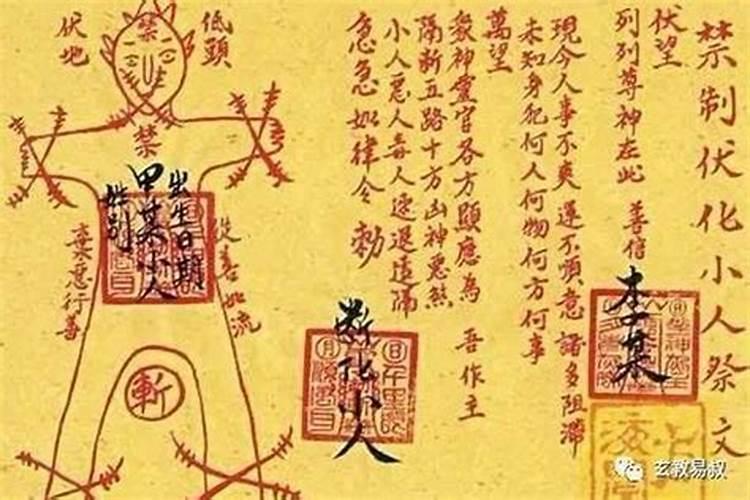 禁制伏化小人祭文
伏望
列列尊神在此 善信 李某
現今人事不爽 運不順意 諸多阻滯
未知身犯何人何物何方何事
萬望
眾神靈官各方顯應為 吾作主
隔斷五路十方凶神惡煞
小人惡人毒人速退遠隔
急急如律令 勅
斷化小人
低頭
禁
伏地
禁
出生日期
甲某小人
姓别
從善如流
棄惡行善
斬
玄教易叔